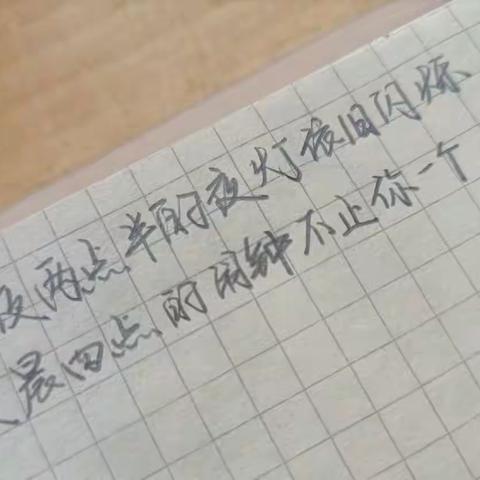 夜两点半的夜灯依旧闪烁
晨四点的闹钟不止你一个